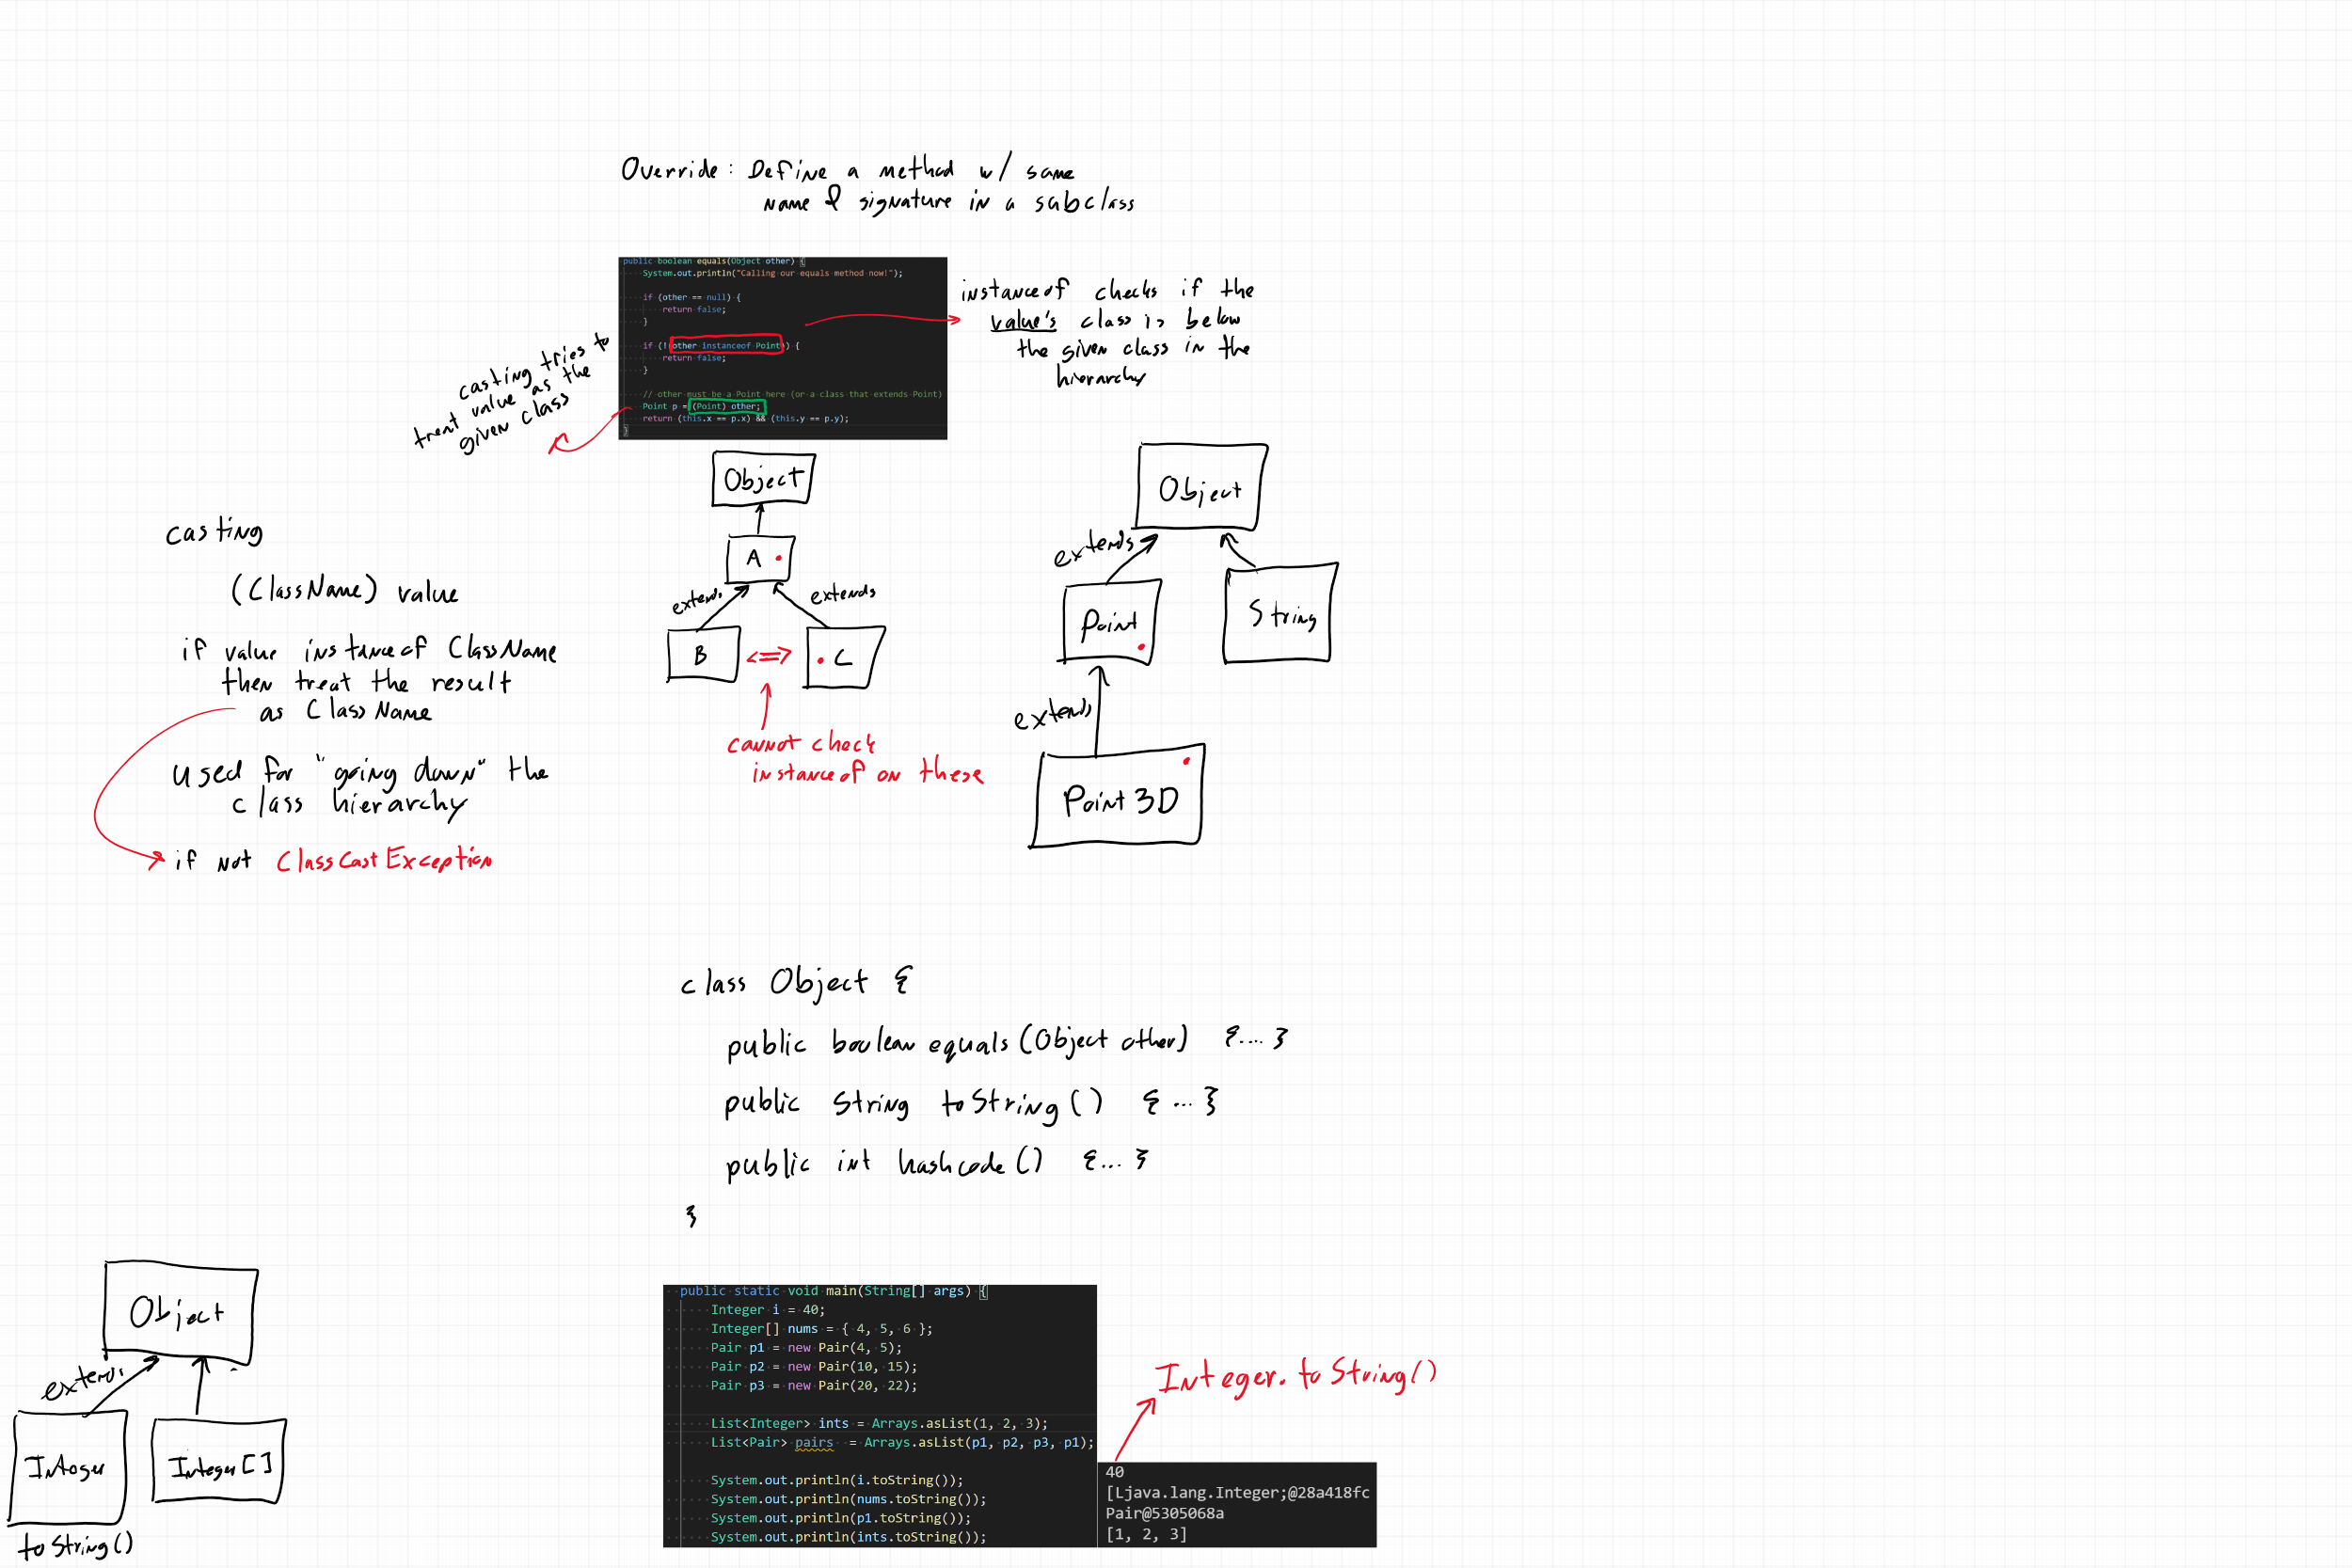 Override: Define a method w/ same
name & signature in a subclass
public boolean equals(Object other) {
System.out.println("Calling our equals method now!");
if (other == null) {
return false;
}
if (!(other instanceof Point)) {
return false;
}
// other must be a Point here (or a class that extends Point)
Point p = (Point) other;
return (this.x == p.x) && (this.y == p.y);
}
instanceof checks if the
value's class is below
the given class in the
hierarchy
casting tries to
treat value as the
given class
casting
(ClassName) value
if value instanceof ClassName
then treat the result
as ClassName
used for "going down" the
class hierarchy
if not ClassCastException
Object
A
extends
extends
B
<=>
C
cannot check
instanceof on these
Object
extends
Point
String
extends
Point 3D
class Object {
public boolean equals(Object other) {....}
public String toString() {...}
public int hashcode() {...}
}
Object
extends
Integer
Integer[]
toString()
public static void main(String[] args) {
Integer i = 40;
Integer[] nums = { 4, 5, 6 };
Pair p1 = new Pair(4, 5);
Pair p2 = new Pair(10, 15);
Pair p3 = new Pair(20, 22);
List<Integer> ints = Arrays.asList(1, 2, 3);
List<Pair> pairs = Arrays.asList(p1, p2, p3, p1);
System.out.println(i.toString());
System.out.println(nums.toString());
System.out.println(p1.toString());
System.out.println(ints.toString());
Integer.toString()
40
[Ljava.lang.Integer;@28a418fc
Pair@5305068a
[1, 2, 3]